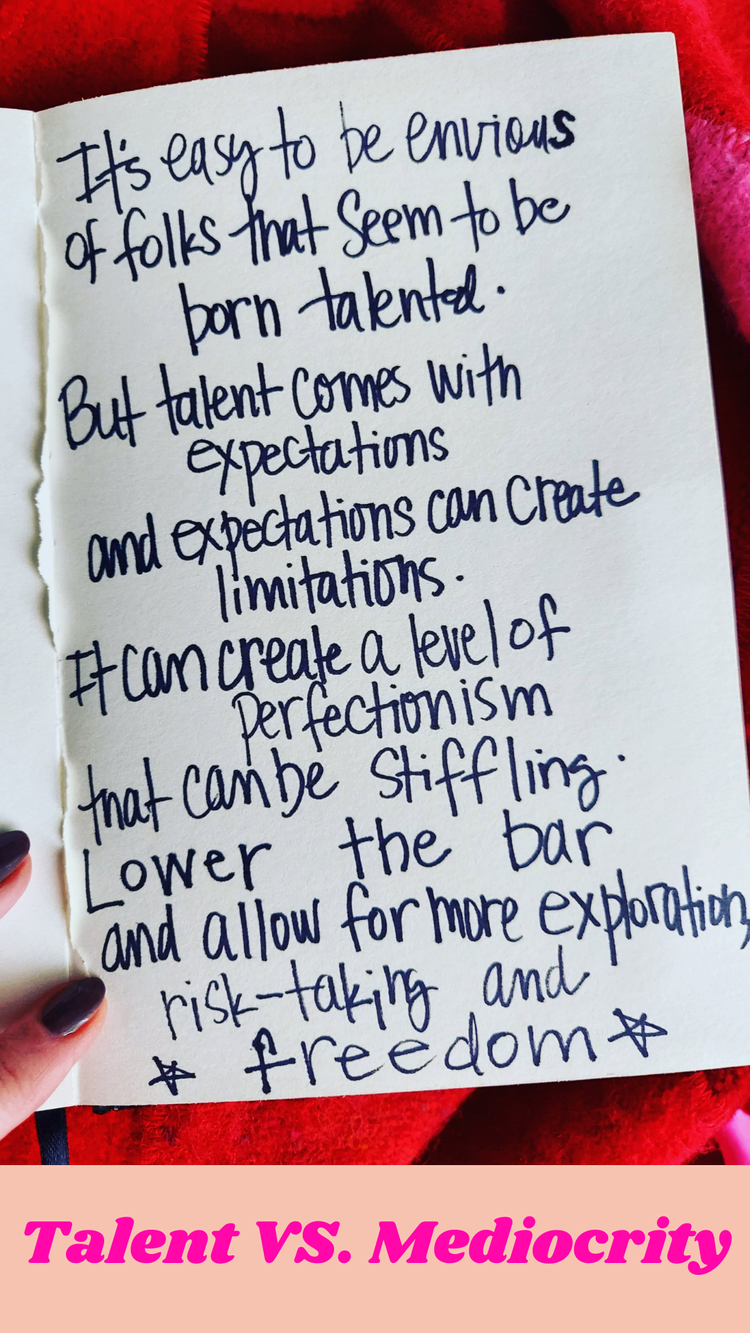 It's easy to be envious
of folks that seem to be
born talented.
But talent comes with
expectations
and expectations can create
limitations.
It can create a level of
perfectionism
that can be stiffling.
Lower the bar
and allow for more exploration,
risk-taking and
☆ freedom ☆
Talent VS. Mediocrity